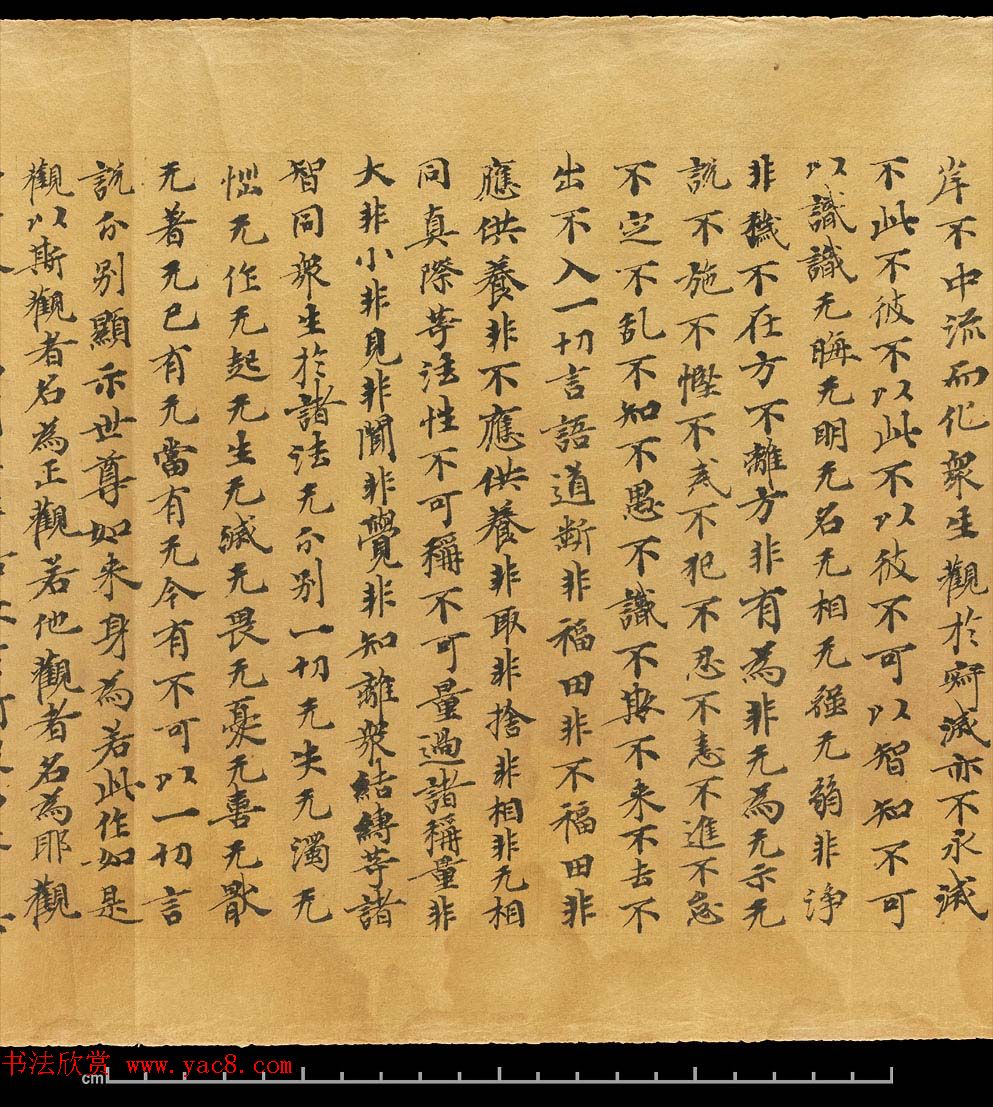 岸不中流而化衆生觀於寂滅亦不永滅
不此不彼不以此不以彼不可以智知不可
以識識无晦无明无名无相无強无弱非浄
非穢不在方不離方非有為非无為无示无
説不施不慳不戒不犯不忍不恚不進不怠
不定不乱不知不愚不識不欺不来不去不
出不入一切言語道断非福田非不福田非
應供養非不應供養非取非捨非相非无相
同真際等法性不可稱不可量過諸稱量非
大非小非見非聞非覺非知離衆結縛等諸
智同衆生於諸法无分别一切无失无濁无
惱无作无起无生无滅无畏无憂无喜无猒
无著无已有无當有无今有不可以一切言
説分别顯示世尊如来身為若此作如是
觀以斯觀者名為正觀若他觀者名為耶觀
书法欣赏 www.yac8.com
cm